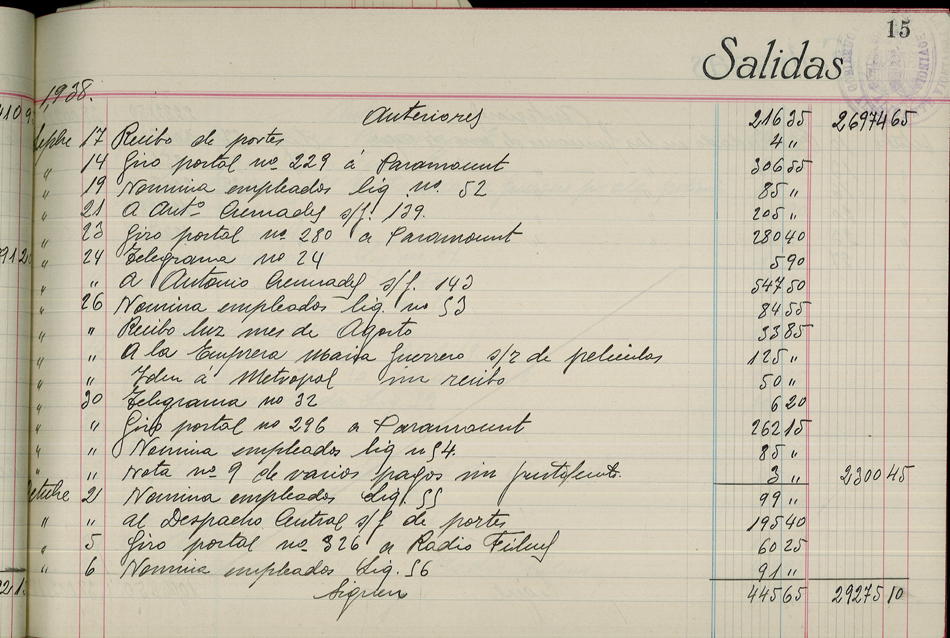 15
Salidas
1938.
Anteriores 216 35 26974 65
Sepbre 17 Recibo de portes 4 "
" 14 Giro postal nº 229 á Paramount 306 55
" 19 Nomina empleados liq. nº. 52 85 "
" 21 A Antº Cremades s/f. 139. 205 "
" 23 Giro postal nº 280 a Paramount 280 40
" 24 Telegrama nº 24 5 90
" " A Antonio Cremades s/f. 143 547 50
" 26 Nomina empleados liq. nº 53 84 55
" " Recibo luz mes de Agosto 33 85
" " A la Empresa Maria Guerrero s/r de peliculas 125 "
" " Idem á Metropol sin recibo 50 "
" 30 Telegrama nº 32 6 20
" " Giro postal nº 296 a Paramount 262 15
" " Nomina empleados liq n 54. 85 "
" " Nota nº 9 de varios pagos sin justifcnte. 3 " 2300 45
Octubre 21 Nomina empleados Liq. 55 99 "
" " al Despacho Central s/f de portes 195 40
" 5 Giro postal nº. 326 a Radio Films 60 25
" 6 Nomina empleados Liq. 56 91 "
Siguen 445 65 29275 10